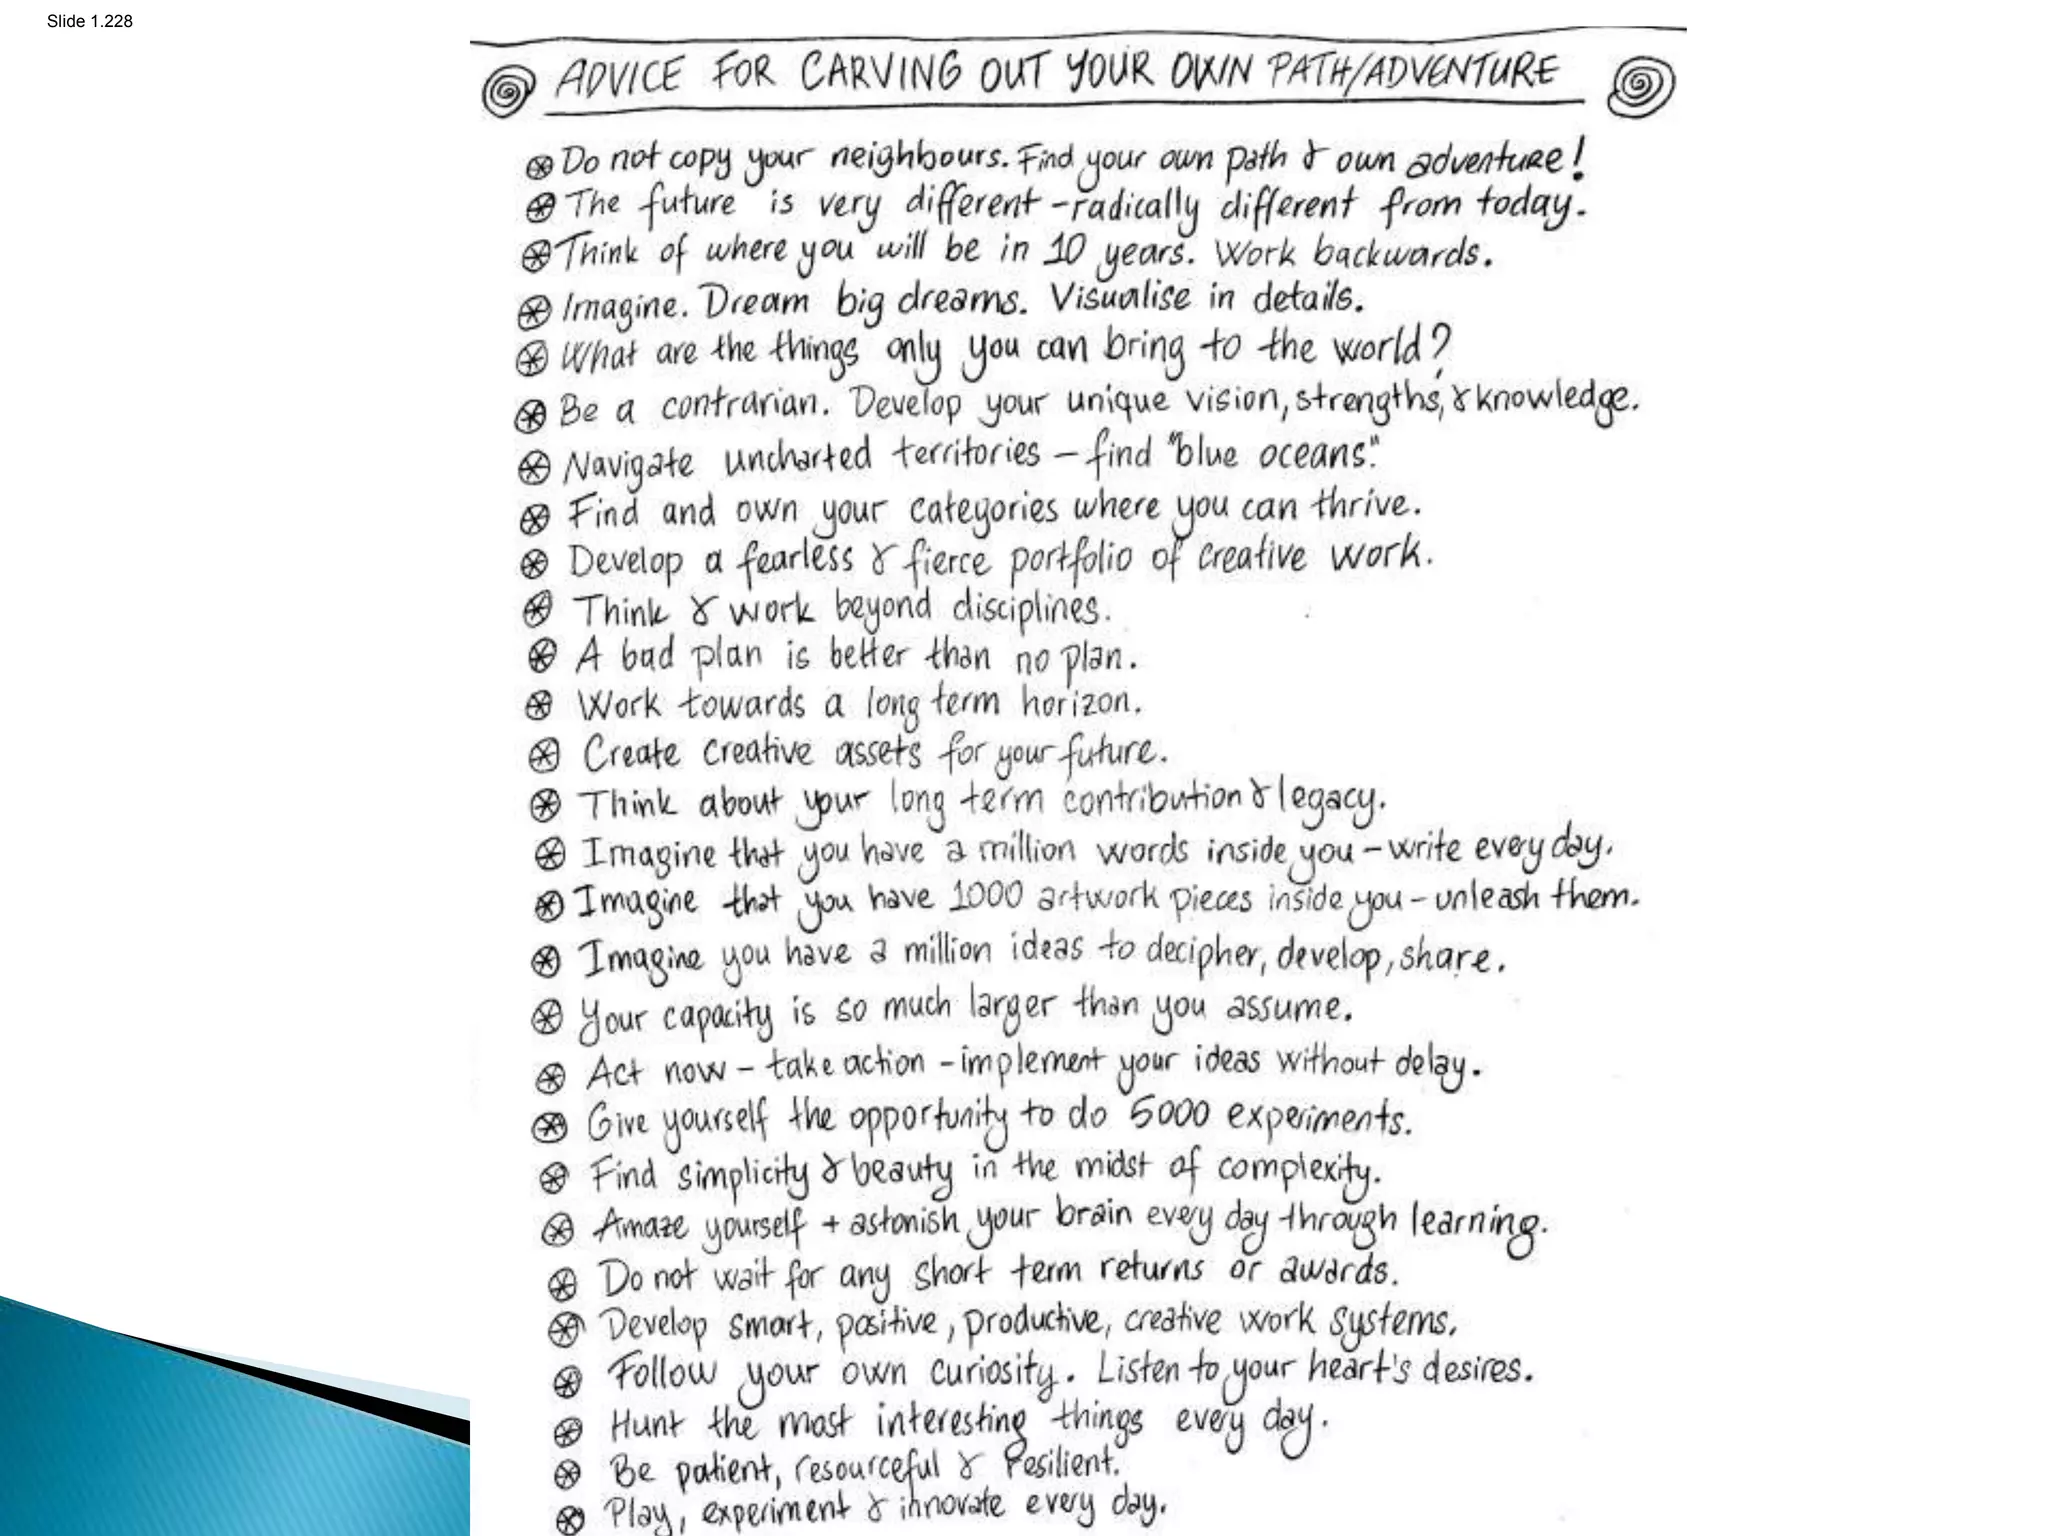 Slide 1.228
ADVICE FOR CARVING OUT YOUR OWN PATH/ADVENTURE
Do not copy your neighbours. Find your own path & own adventure!
The future is very different - radically different from today.
Think of where you will be in 10 years. Work backwards.
Imagine. Dream big dreams. Visualise in details.
What are the things only you can bring to the world?
Be a contrarian. Develop your unique vision, strengths, & knowledge.
Navigate uncharted territories - find "blue oceans".
Find and own your categories where you can thrive.
Develop a fearless & fierce portfolio of creative work.
Think & work beyond disciplines.
A bad plan is better than no plan.
Work towards a long term horizon.
Create creative assets for your future.
Think about your long term contribution & legacy.
Imagine that you have a million words inside you - write every day.
Imagine that you have 1000 artwork pieces inside you - unleash them.
Imagine you have a million ideas to decipher, develop, share.
Your capacity is so much larger than you assume.
Act now - take action - implement your ideas without delay.
Give yourself the opportunity to do 5000 experiments.
Find simplicity & beauty in the midst of complexity.
Amaze yourself + astonish your brain every day through learning.
Do not wait for any short term returns or awards.
Develop smart, positive, productive, creative work systems.
Follow your own curiosity. Listen to your heart's desires.
Hunt the most interesting things every day.
Be patient, resourceful & resilient.
Play, experiment & innovate every day.